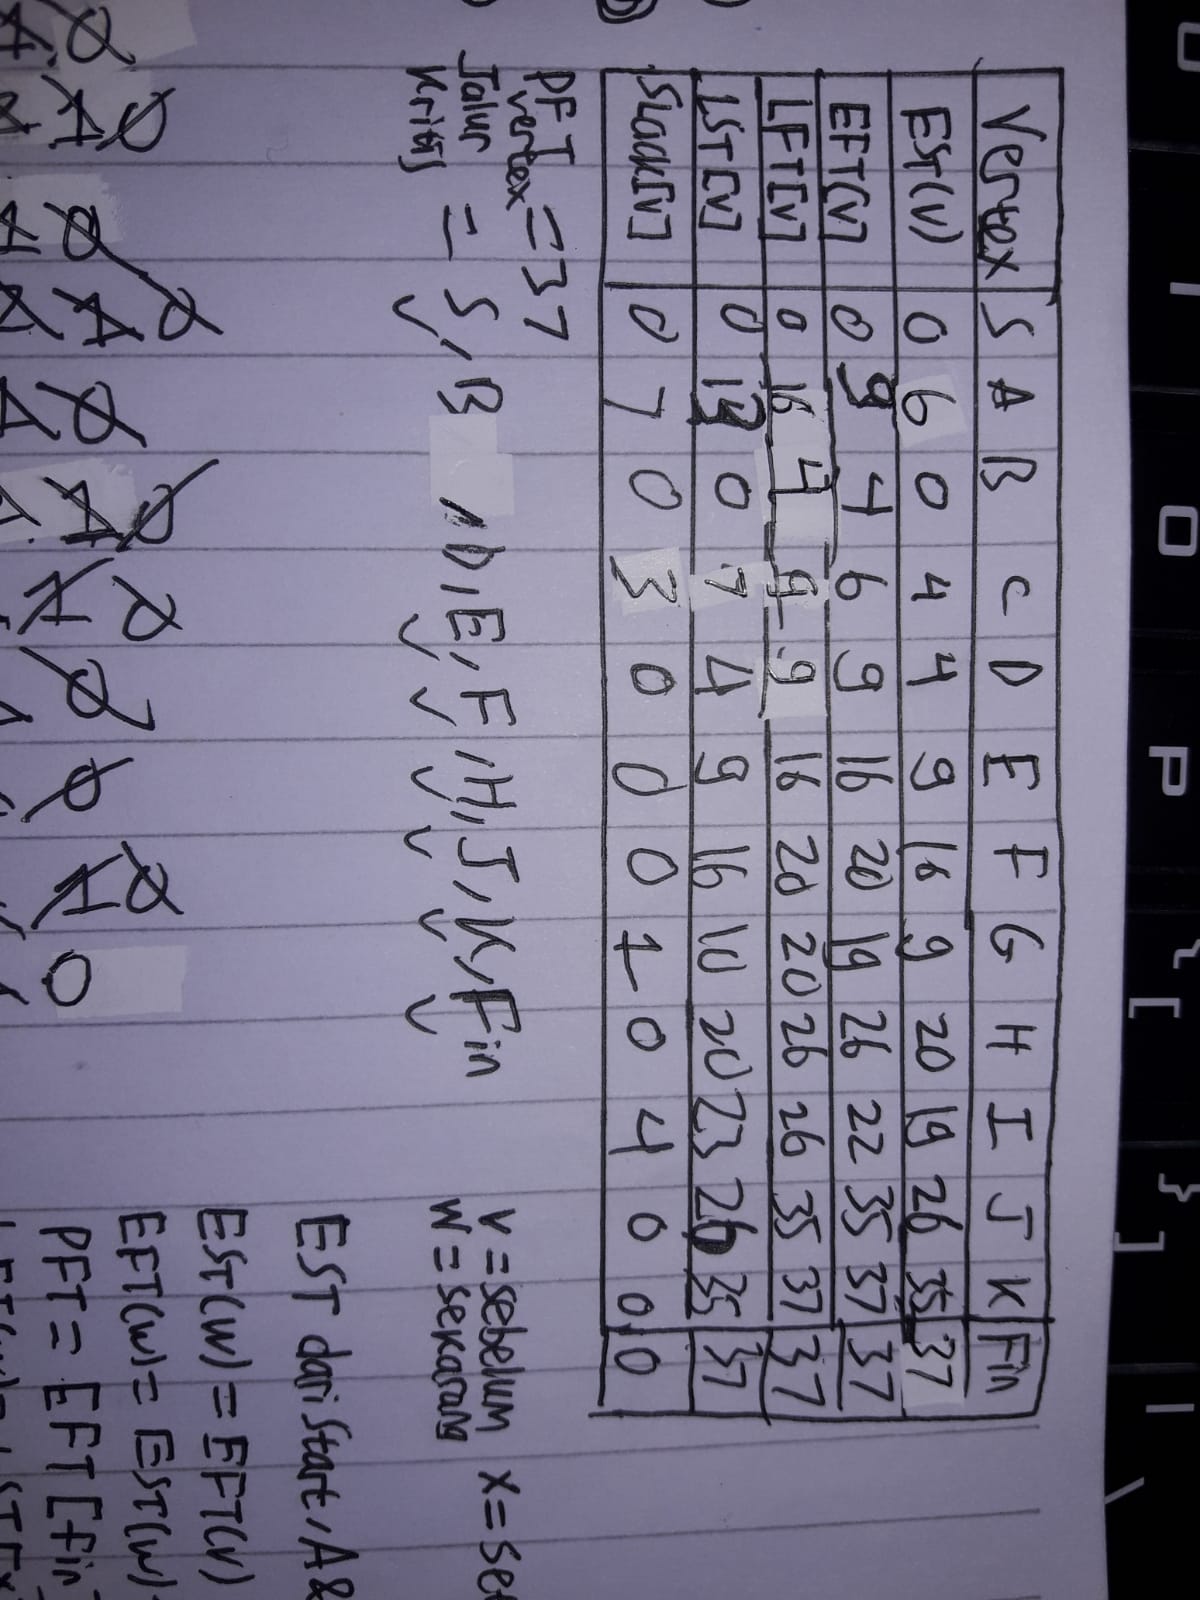 O P { [ } ] | \
Vertex S A B C D E F G H I J K Fin
EST(V) 0 6 0 4 4 9 16 9 20 19 26 35 37
EFT[V] 0 9 4 6 9 16 20 19 26 22 35 37 37
LFT[V] 0 16 4 9 9 16 20 20 26 26 35 37 37
LST[V] 0 13 0 7 4 9 16 10 20 23 26 35 37
Slack[V] 0 7 0 3 0 0 0 1 0 4 0 0 0
PFT vertex = 37
Jalur Kritis = S, B , D, E, F, H, J, K, Fin
V = sebelum X = se
W = sekarang
EST dari Start, A &
EST(W) = EFT(V)
EFT(W) = EST(W)
PFT = EFT[fin]